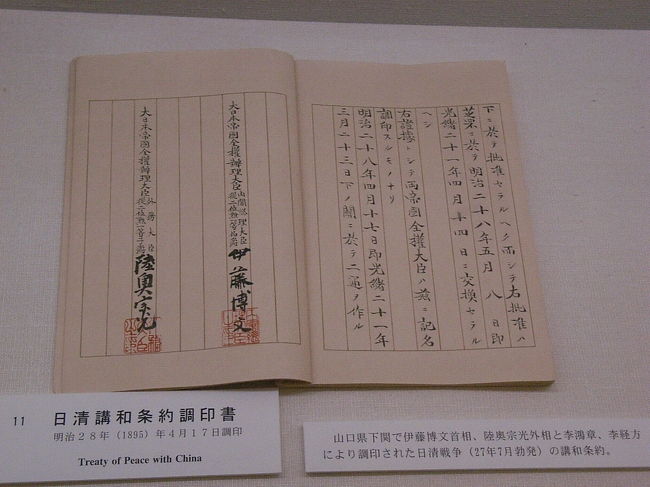 下ニ於テ批准セラルヘク而シテ右批准ハ
芝罘ニ於テ明治二十八年五月八日即
光緒二十一年四月十四日ニ交換セラル
ヘシ
右證據トシテ両帝國全權大臣ハ茲ニ記名
調印スルモノナリ
明治二十八年四月十七日即光緒二十一年
三月二十三日下ノ關ニ於テ二通ヲ作ル
大日本帝國全權辦理大臣內閣總理大臣從二位勲一等伯爵伊藤博文
大日本帝國全權辦理大臣外務大臣從二位勲一等子爵陸奥宗光
11 日清講和条約調印書
明治28年(1895)年4月17日調印
Treaty of Peace with China
山口県下関で伊藤博文首相、陸奥宗光外相と李鴻章、李経方
により調印された日清戦争(27年7月勃発)の講和条約。